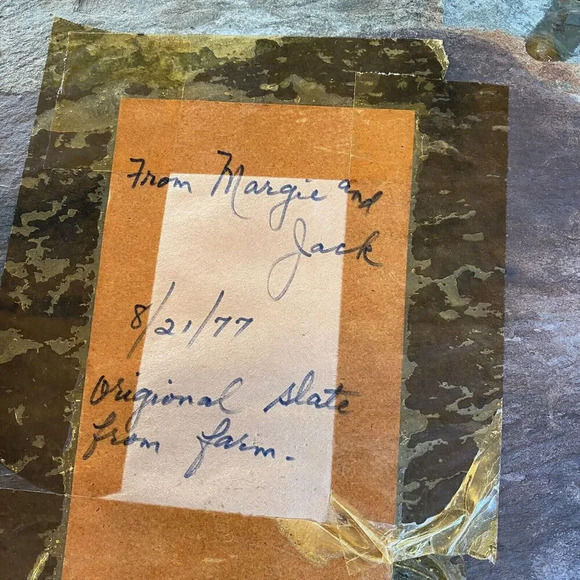 From Margie and
Jack
8/21/77
Origional slate
from farm.